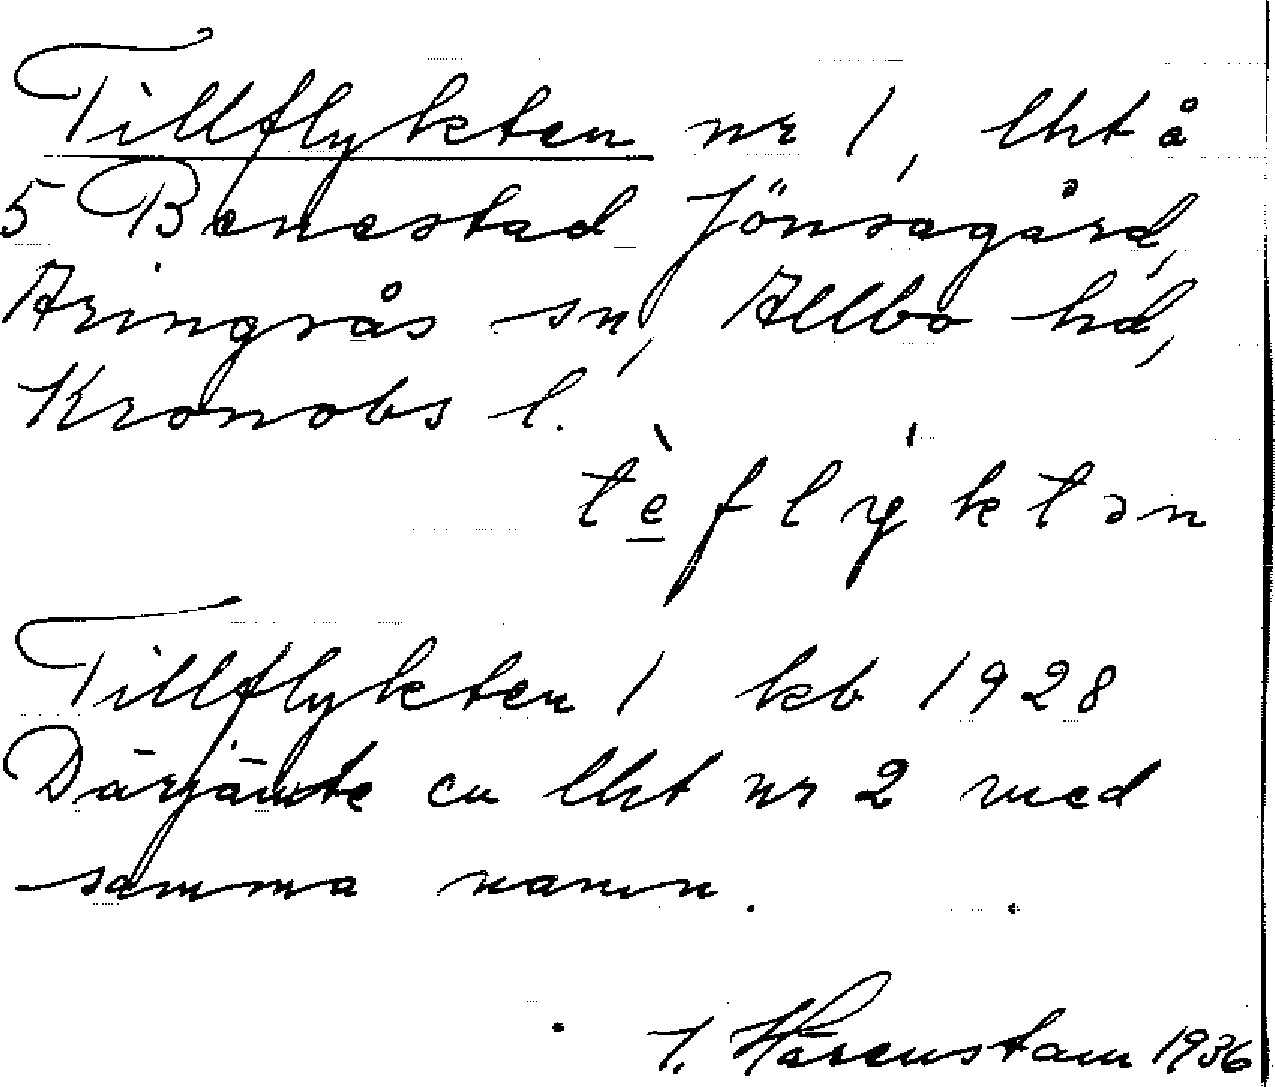 Tillflykten nr 1, lht å
5 Benestad Jönsagård,
Aringsås sn, Allbo hd,
Kronobs l.
tèflyktən
Tillflykten 1 kb 1928
Därjämte en lht nr 2 med
samma namn.
J. Hårenstam 1936